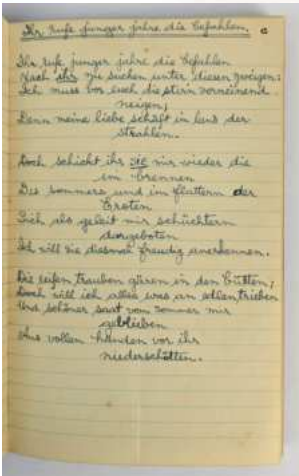 Ihr rufe junger jahre die befahlen
Ihr rufe junger jahre die befahlen
Nach ihr zu suchen unter diesen zweigen:
Ich muss vor euch die stirn verneinend
neigen,
Denn meine liebe schläft im land der
strahlen.
Doch schickt ihr sie mir wieder die
im brennen
Des sommers und im flattern der
Eroten
Sich als geleit mir schüchtern
dargeboten
Ich will sie diesmal freudig anerkennen.
Die reifen trauben gären in den bütten;
Doch will ich alles was an edlen trieben
Und schöner saat vom sommer mir
geblieben
Aus vollen händen vor ihr
niederschütten.